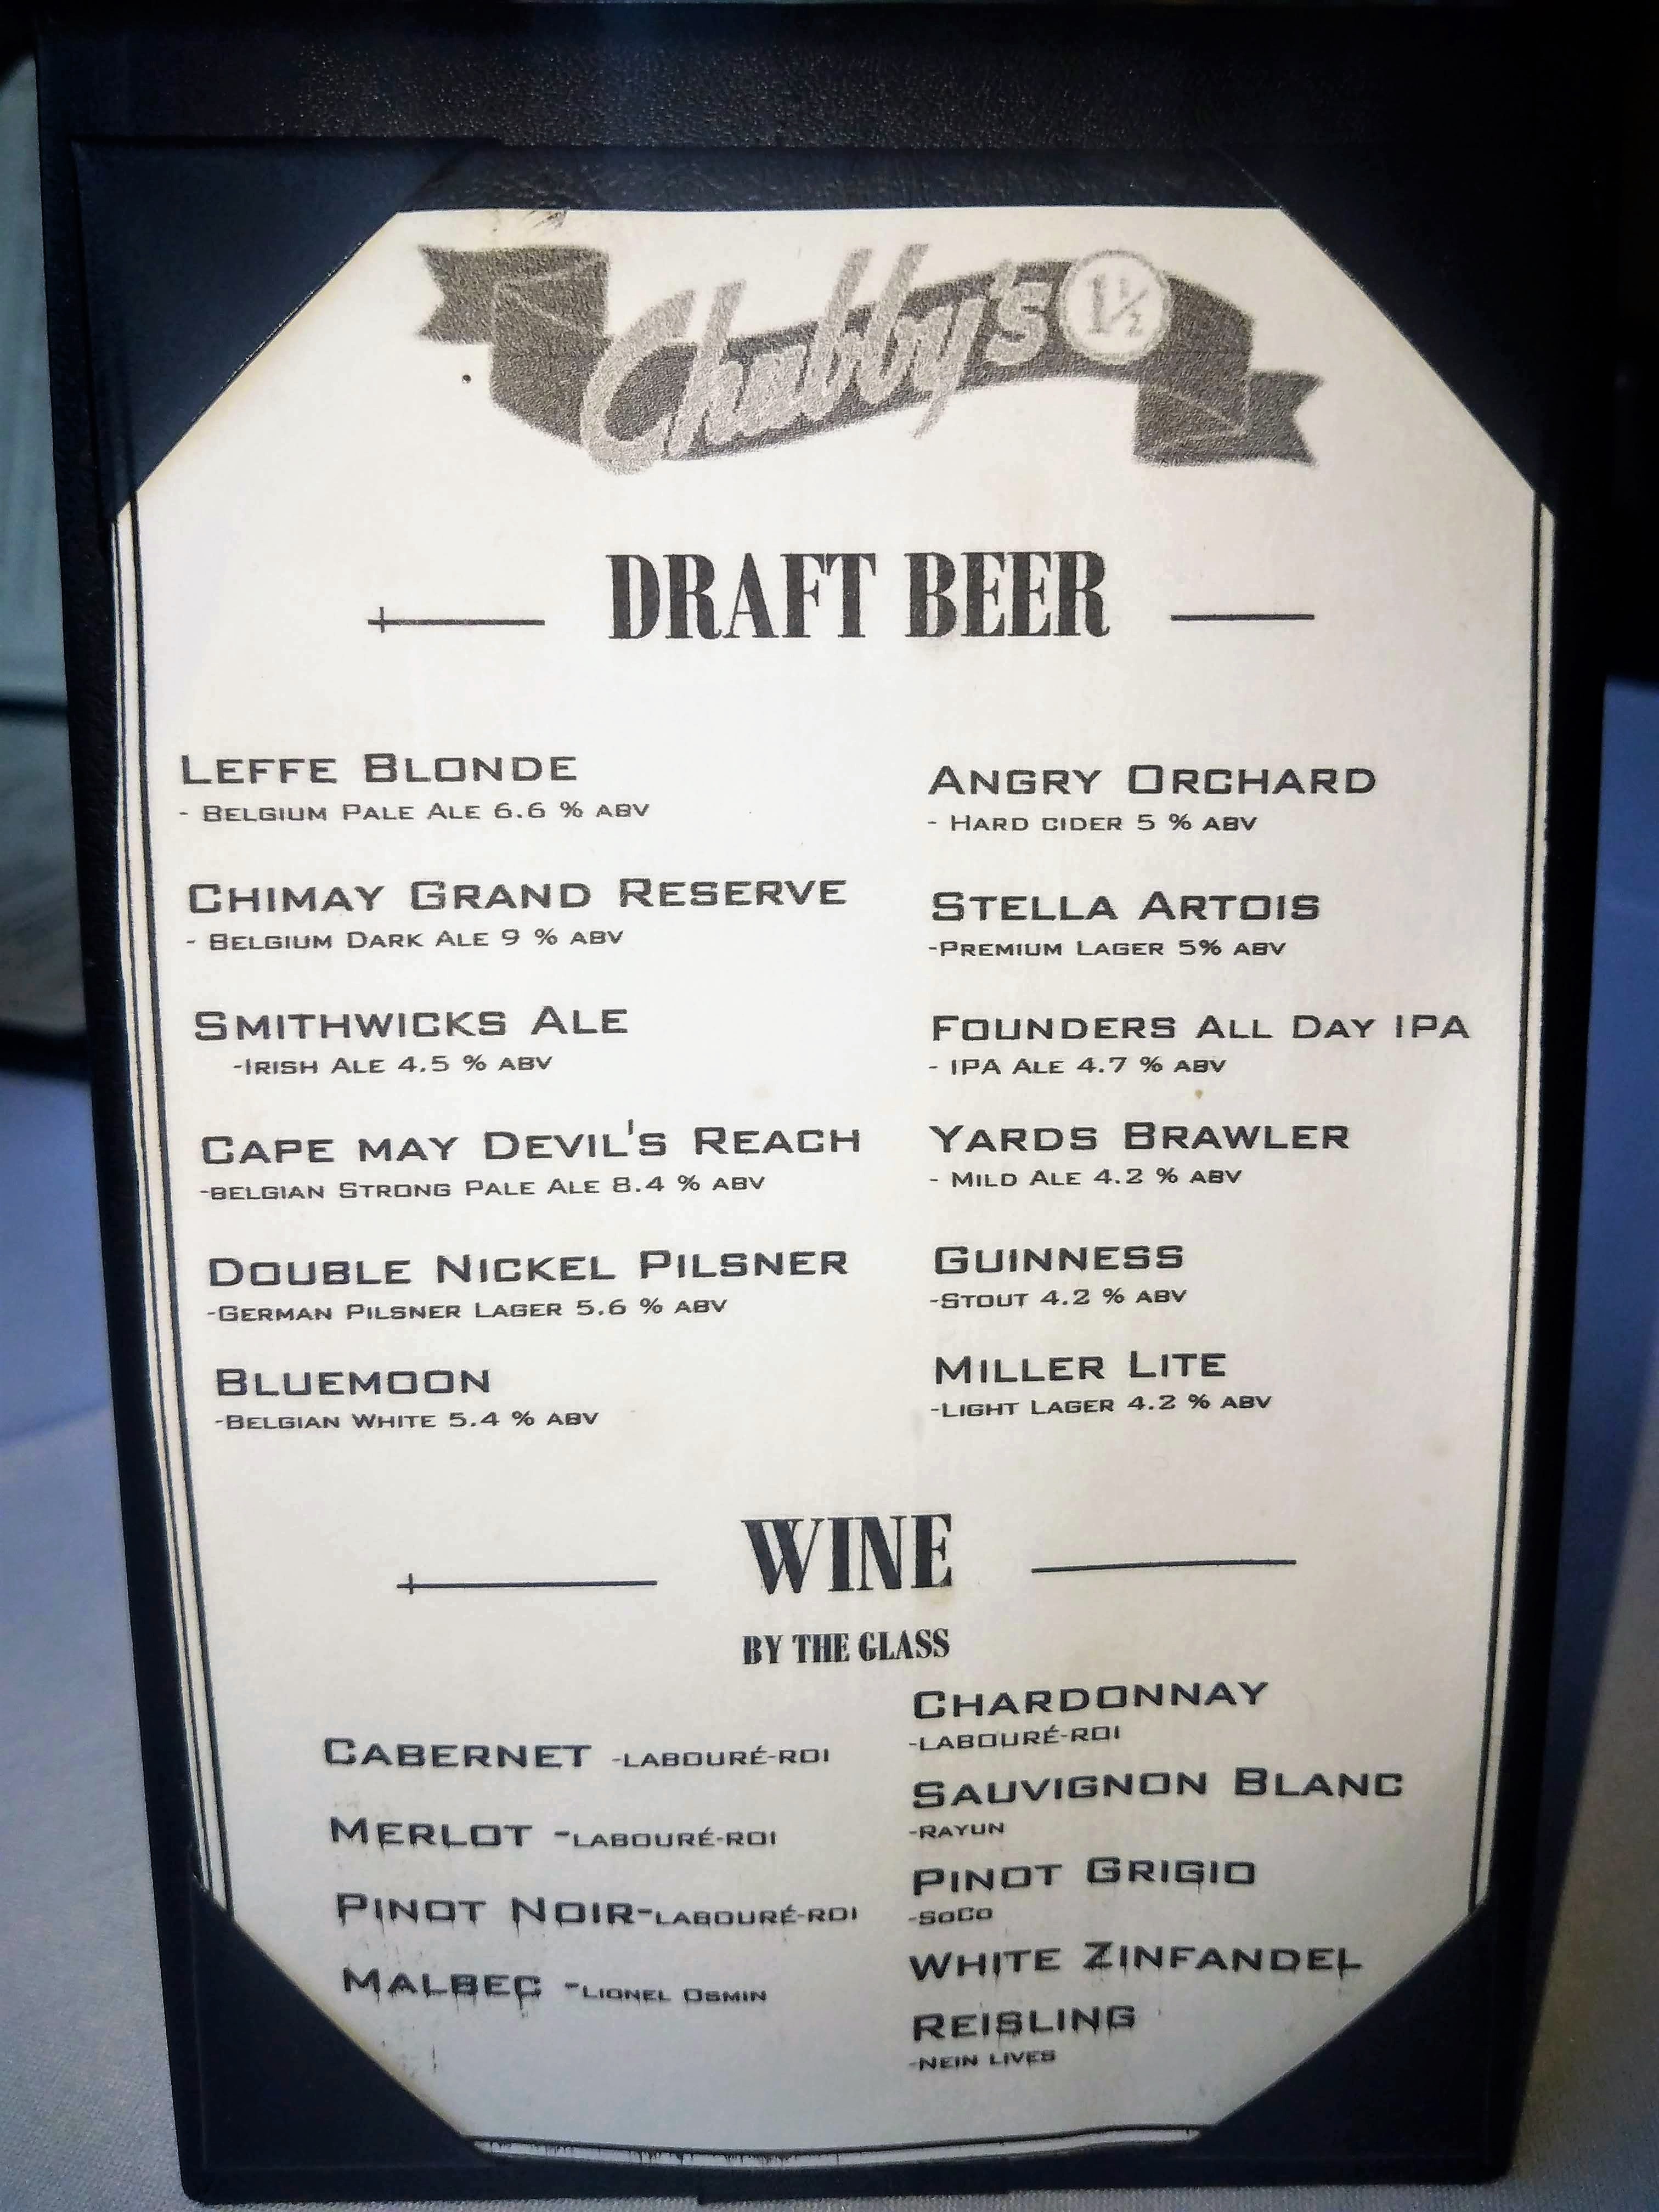 Chubby's 1½
DRAFT BEER
LEFFE BLONDE
- BELGIUM PALE ALE 6.6 % ABV
CHIMAY GRAND RESERVE
- BELGIUM DARK ALE 9 % ABV
SMITHWICKS ALE
-IRISH ALE 4.5 % ABV
CAPE MAY DEVIL'S REACH
-BELGIAN STRONG PALE ALE 8.4 % ABV
DOUBLE NICKEL PILSNER
-GERMAN PILSNER LAGER 5.6 % ABV
BLUEMOON
-BELGIAN WHITE 5.4 % ABV
ANGRY ORCHARD
- HARD CIDER 5 % ABV
STELLA ARTOIS
-PREMIUM LAGER 5% ABV
FOUNDERS ALL DAY IPA
- IPA ALE 4.7 % ABV
YARDS BRAWLER
- MILD ALE 4.2 % ABV
GUINNESS
-STOUT 4.2 % ABV
MILLER LITE
-LIGHT LAGER 4.2 % ABV
WINE
BY THE GLASS
CABERNET -LABOURÉ-ROI
MERLOT -LABOURÉ-ROI
PINOT NOIR-LABOURÉ-ROI
MALBEC -LIONEL OSMIN
CHARDONNAY
-LABOURÉ-ROI
SAUVIGNON BLANC
-RAYUN
PINOT GRIGIO
-SOCO
WHITE ZINFANDEL
REISLING
-NEIN LIVES